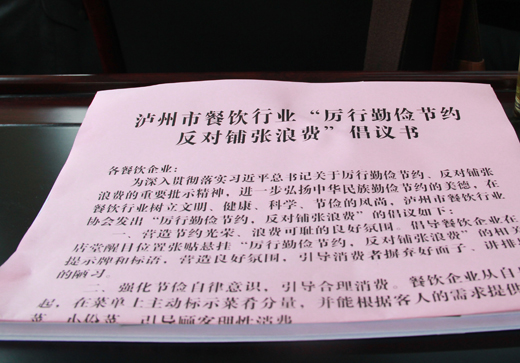 泸州市餐饮行业“厉行勤俭节约
反对铺张浪费”倡议书
各餐饮企业：
为深入贯彻落实习近平总书记关于厉行勤俭节约、反对铺张
浪费的重要批示精神，进一步弘扬中华民族勤俭节约的美德，在
餐饮行业树立文明、健康、科学、节俭的风尚，泸州市餐饮行业
协会发出“厉行勤俭节约，反对铺张浪费”的倡议如下：
一、营造节约光荣、浪费可耻的良好氛围。倡导餐饮企业在
店堂醒目位置张贴悬挂“厉行勤俭节约，反对铺张浪费”的相关
提示牌和标语，营造良好氛围，引导消费者摒弃好面子、讲排
的陋习。
二、强化节俭自律意识，引导合理消费。餐饮企业从自
起，在菜单上主动标示菜肴分量，并能根据客人的需求提供
菜、小份菜，引导顾客理性消费。